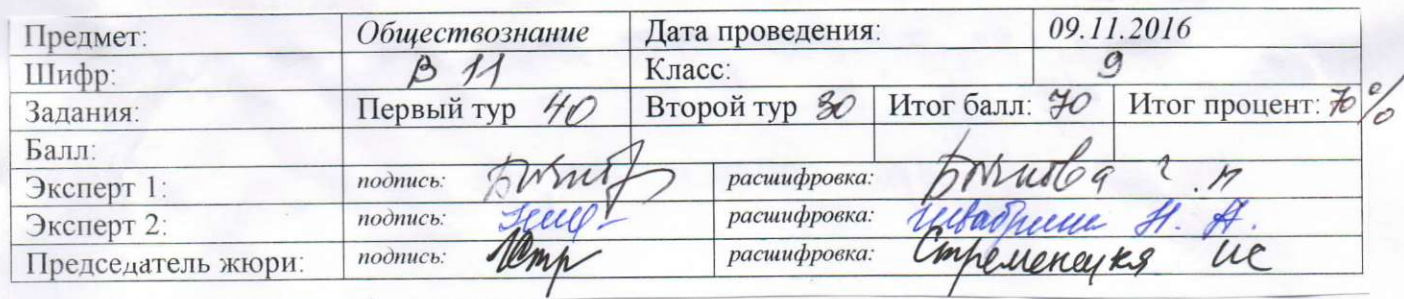 Предмет: Обществознание Дата проведения: 09.11.2016
Шифр: В 11 Класс: 9
Задания: Первый тур 40 Второй тур 30 Итог балл: 70 Итог процент: 70%
Балл:
Эксперт 1: подпись: расшифровка: Г.П
Эксперт 2: подпись: расшифровка: Н. А.
Председатель жюри: подпись: расшифровка: ИС